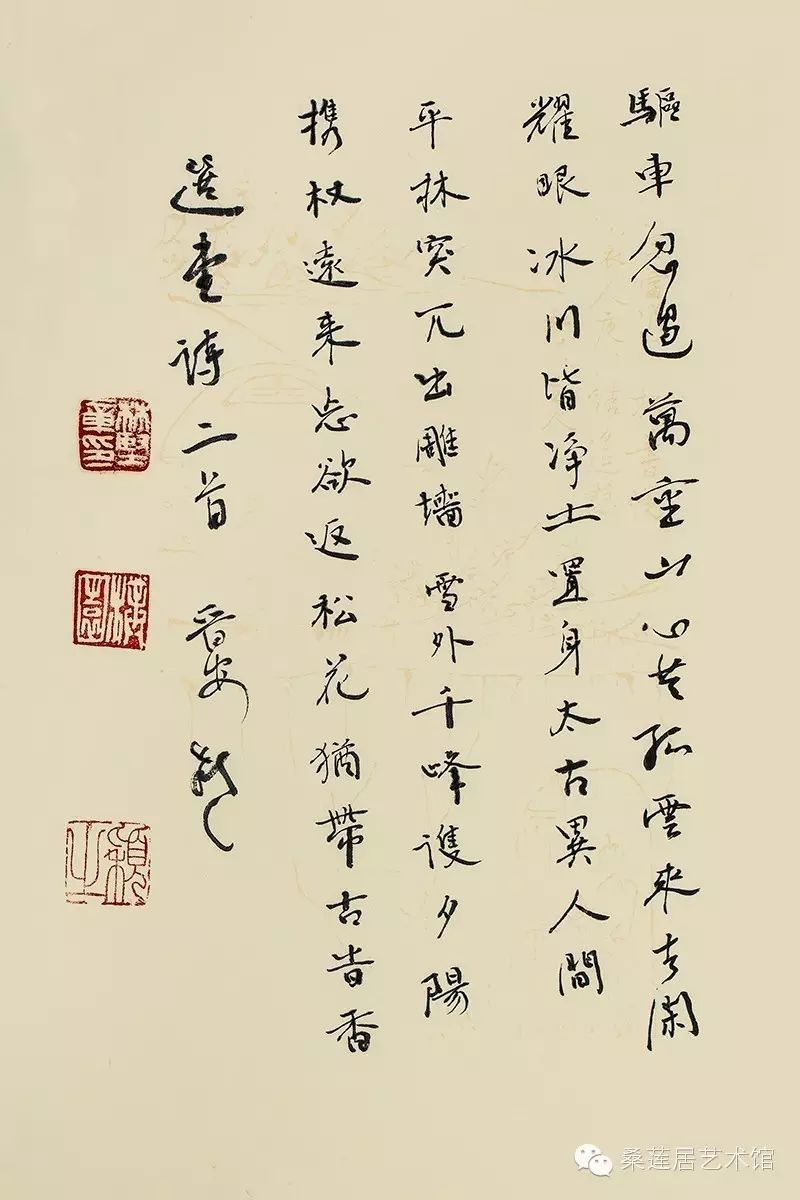 驅車忽過萬重山心共孤雲來去閑
耀眼冰川皆净土置身太古異人間
平林突兀出雕墻雪外千峰護夕陽
携杖遠來忘欲返松花猶帶古昔香
選堂詩二首 晉安
桑莲居艺术馆